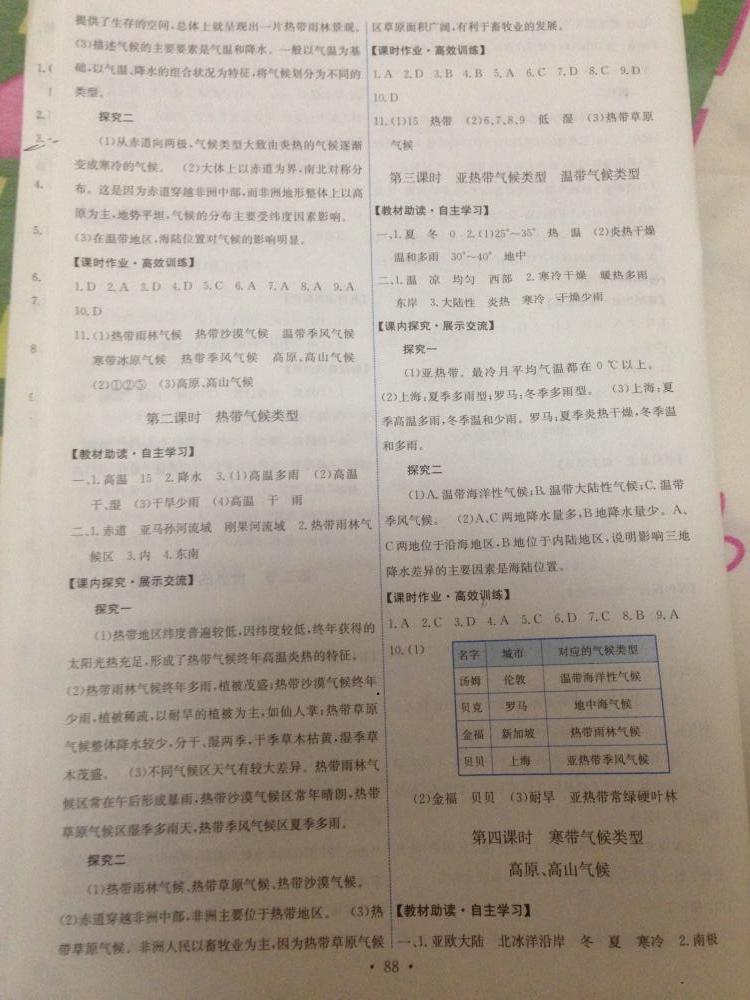 提供了生存的空间,总体上就呈现出一片热带雨林景观。
(3)描述气候的主要要素是气温和降水。一般以气温为基
础,以气温、降水的组合状况为特征,将气候划分为不同的
类型。
探究二
(1)从赤道向两极,气候类型大致由炎热的气候逐渐
变成寒冷的气候。 (2)大体上以赤道为界,南北对称分
布。这是因为赤道穿越非洲中部,而非洲地形整体上以高
原为主,地势平坦,气候的分布主要受纬度因素影响。
(3)在温带地区,海陆位置对气候的影响明显。
【课时作业·高效训练】
1.D 2.A 3.D 4.D 5.C 6.A 7.A 8.A 9.A
10.D
11.(1)热带雨林气候 热带沙漠气候 温带季风气候
寒带冰原气候 热带季风气候 高原、高山气候
(2)①②⑤ (3)高原、高山气候
第二课时 热带气候类型
【教材助读·自主学习】
一、1.高温 15 2.降水 3.(1)高温多雨 (2)高温
干、湿 (3)干旱少雨 (4)高温 干 雨
二、1.赤道 亚马孙河流域 刚果河流域 2.热带雨林气
候区 3.内 4.东南
【课内探究·展示交流】
探究一
(1)热带地区纬度普遍较低,因纬度较低,终年获得的
太阳光热充足,形成了热带气候终年高温炎热的特征。
(2)热带雨林气候终年多雨,植被茂盛;热带沙漠气候终年
少雨,植被稀疏,以耐旱的植被为主,如仙人掌;热带草原
气候整体降水较少,分干、湿两季,干季草木枯黄,湿季草
木茂盛。 (3)不同气候区天气有较大差异。热带雨林气
候区常在午后形成暴雨,热带沙漠气候区常年晴朗,热带
草原气候区湿季多雨天,热带季风气候区夏季多雨。
探究二
(1)热带雨林气候、热带草原气候、热带沙漠气候。
(2)赤道穿越非洲中部,非洲主要位于热带地区。 (3)热
带草原气候。非洲人民以畜牧业为主,因为热带草原气候
区草原面积广阔,有利于畜牧业的发展。
【课时作业·高效训练】
1.A 2.D 3.B 4.B 5.A 6.C 7.D 8.C 9.D
10.D
11.(1)15 热带 (2)6,7,8,9 低 湿 (3)热带草原
气候
第三课时 亚热带气候类型 温带气候类型
【教材助读·自主学习】
一、1.夏 冬 0 2.(1)25°~35° 热 温 (2)炎热干燥
温和多雨 30°~40° 地中
二、1.温 凉 均匀 西部 2.寒冷干燥 暖热多雨
东岸 3.大陆性 炎热 寒冷 干燥少雨
【课内探究·展示交流】
探究一
(1)亚热带。最冷月平均气温都在 0 ℃以上。
(2)上海:夏季多雨型;罗马:冬季多雨型。 (3)上海:夏
季高温多雨,冬季温和少雨。罗马:夏季炎热干燥,冬季温
和多雨。
探究二
(1)A.温带海洋性气候;B.温带大陆性气候;C.温带
季风气候。 (2)A、C两地降水量多,B地降水量少。A、
C两地位于沿海地区,B地位于内陆地区,说明影响三地
降水差异的主要因素是海陆位置。
【课时作业·高效训练】
1.A 2.C 3.D 4.A 5.C 6.D 7.C 8.B 9.A
10.(1)
名字 城市 对应的气候类型
汤姆 伦敦 温带海洋性气候
贝克 罗马 地中海气候
金福 新加坡 热带雨林气候
贝贝 上海 亚热带季风气候
(2)金福 贝贝 (3)耐旱 亚热带常绿硬叶林
第四课时 寒带气候类型
高原、高山气候
【教材助读·自主学习】
一、1.亚欧大陆 北冰洋沿岸 冬 夏 寒冷 2.南极
· 88 ·